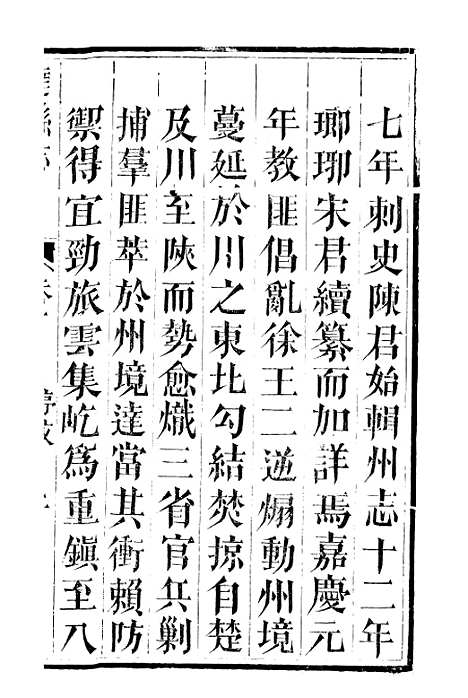 七年刺史陳君始輯州志十二年
瑯琊宋君續纂而加詳焉嘉慶元
年教匪倡亂徐王二逆煽動州境
蔓延於川之東北勾結焚掠自楚
及川至陝而勢愈熾三省官兵剿
捕羣匪萃於州境達當其衝賴防
禦得宜勁旅雲集屹為重鎭至八